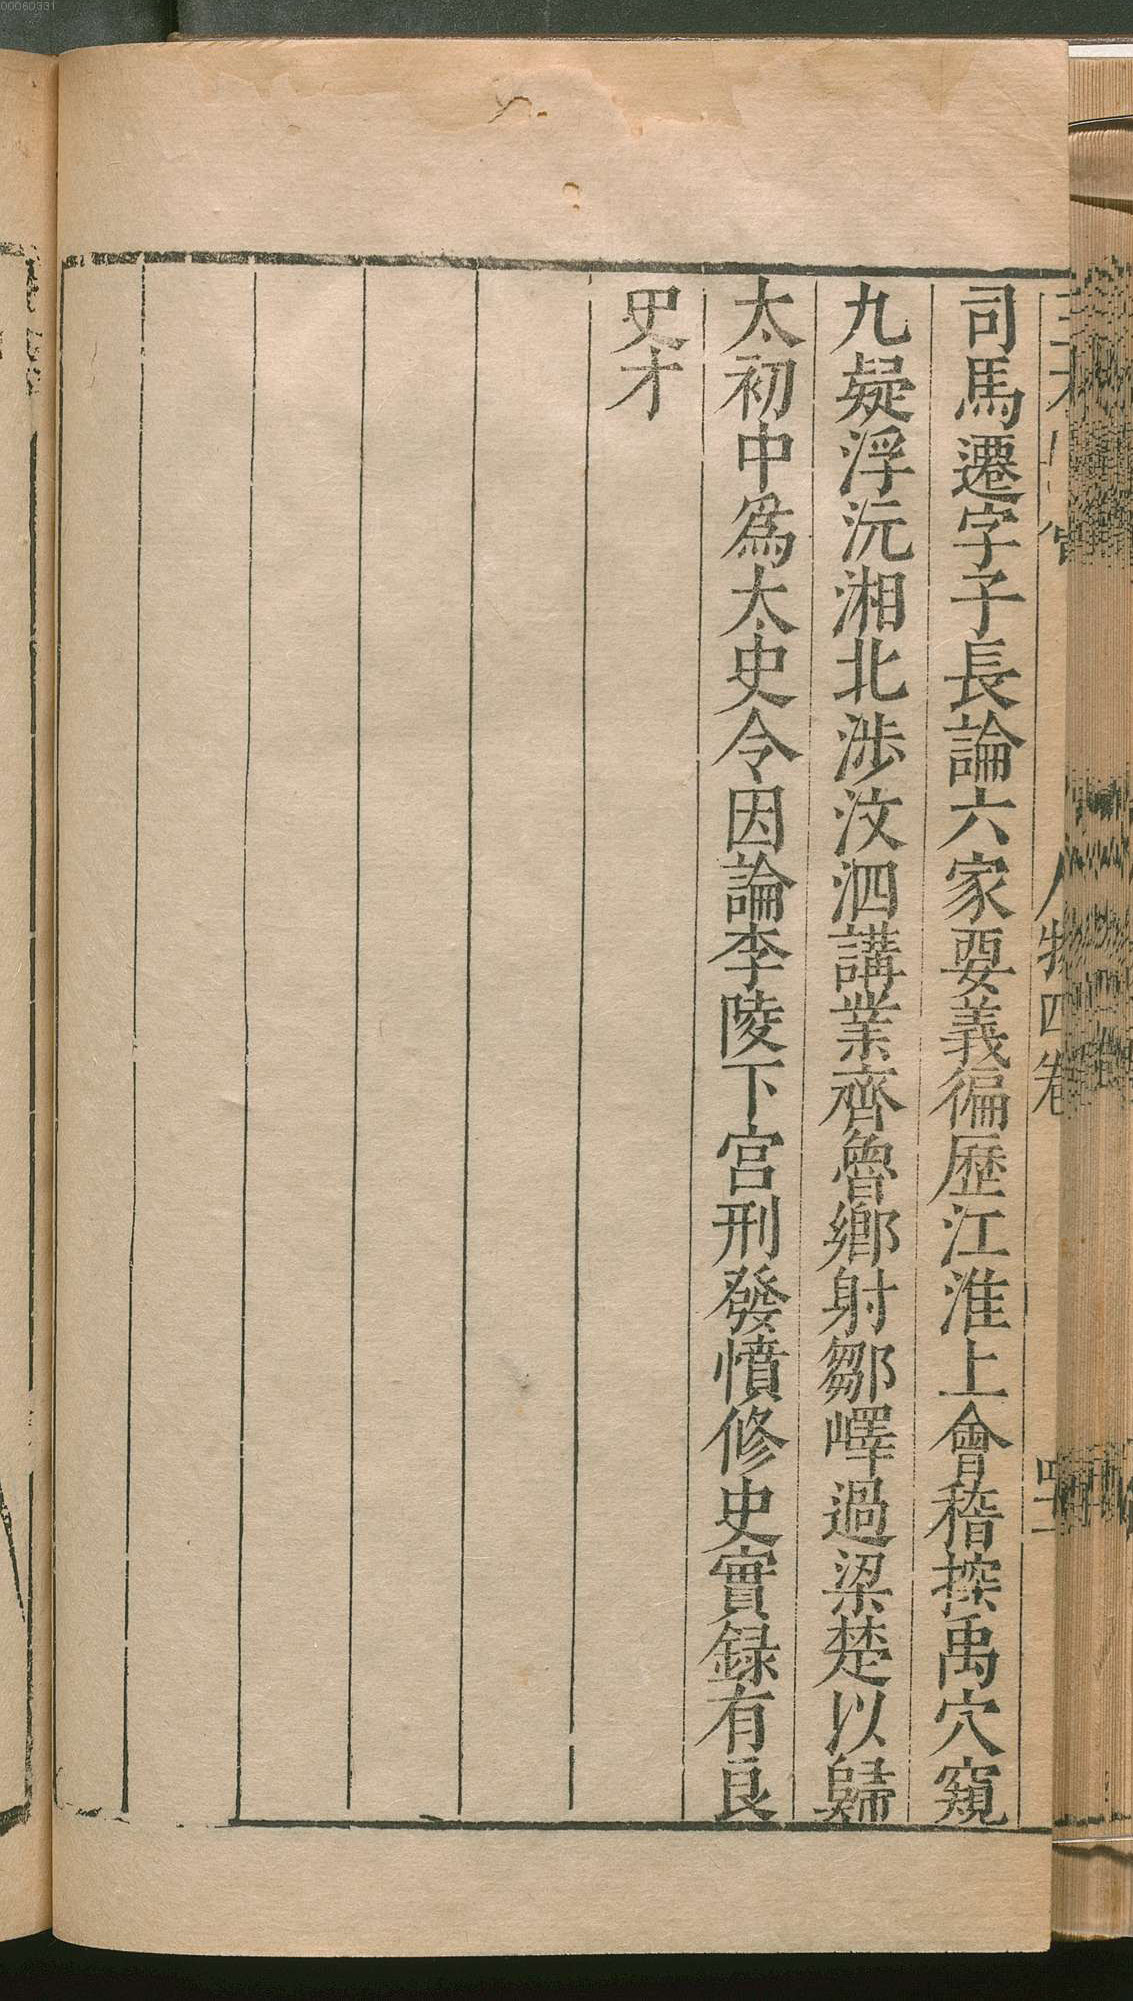 00060331
司馬遷字子長論六家要義徧歴江淮上會稽探禹穴窺
九疑浮沅湘北涉汶泗講業齊魯鄉射鄒嶧過梁楚以歸
太初中爲太史令因論李陵下宮刑發憤修史實録有良
史才
人物四卷